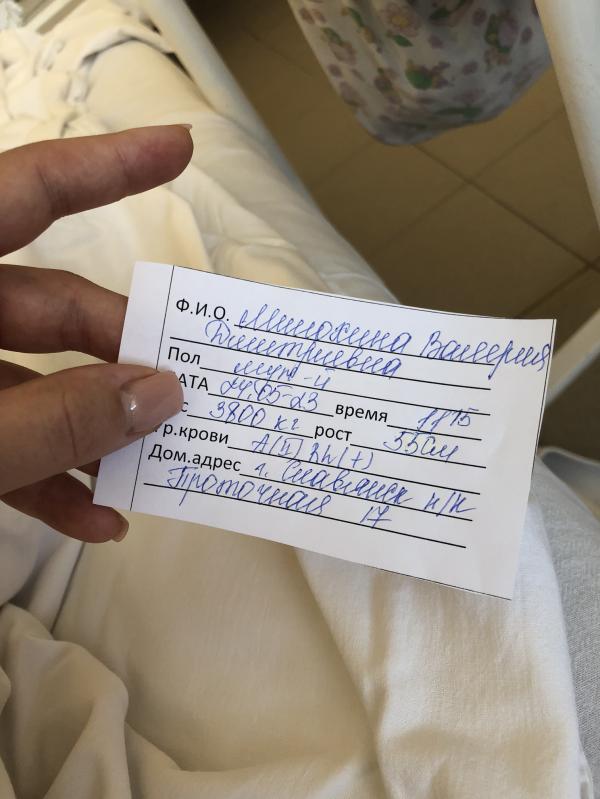 Ф.И.О. Минохина Валерия
Дмитриевна
Пол муж-й
ДАТА 24.05-23 время 11 15
с 3800 кг рост 55см
Гр.крови A(II) Rh(+)
Дом.адрес г. Славянск н/К
Проточная 17